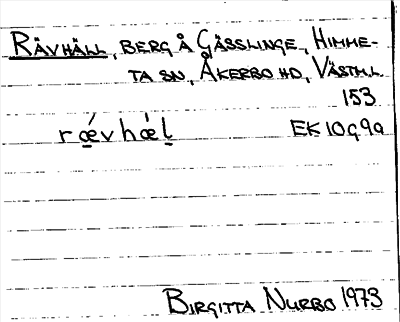 RÄVHÄLL, BERG Å GÄSSLINGE, HIMME-
TA SN, ÅKERBO HD, VÄSTM.L.
153
rǽvhæ̀l EK 10G9a
BIRGITTA NURBO 1973